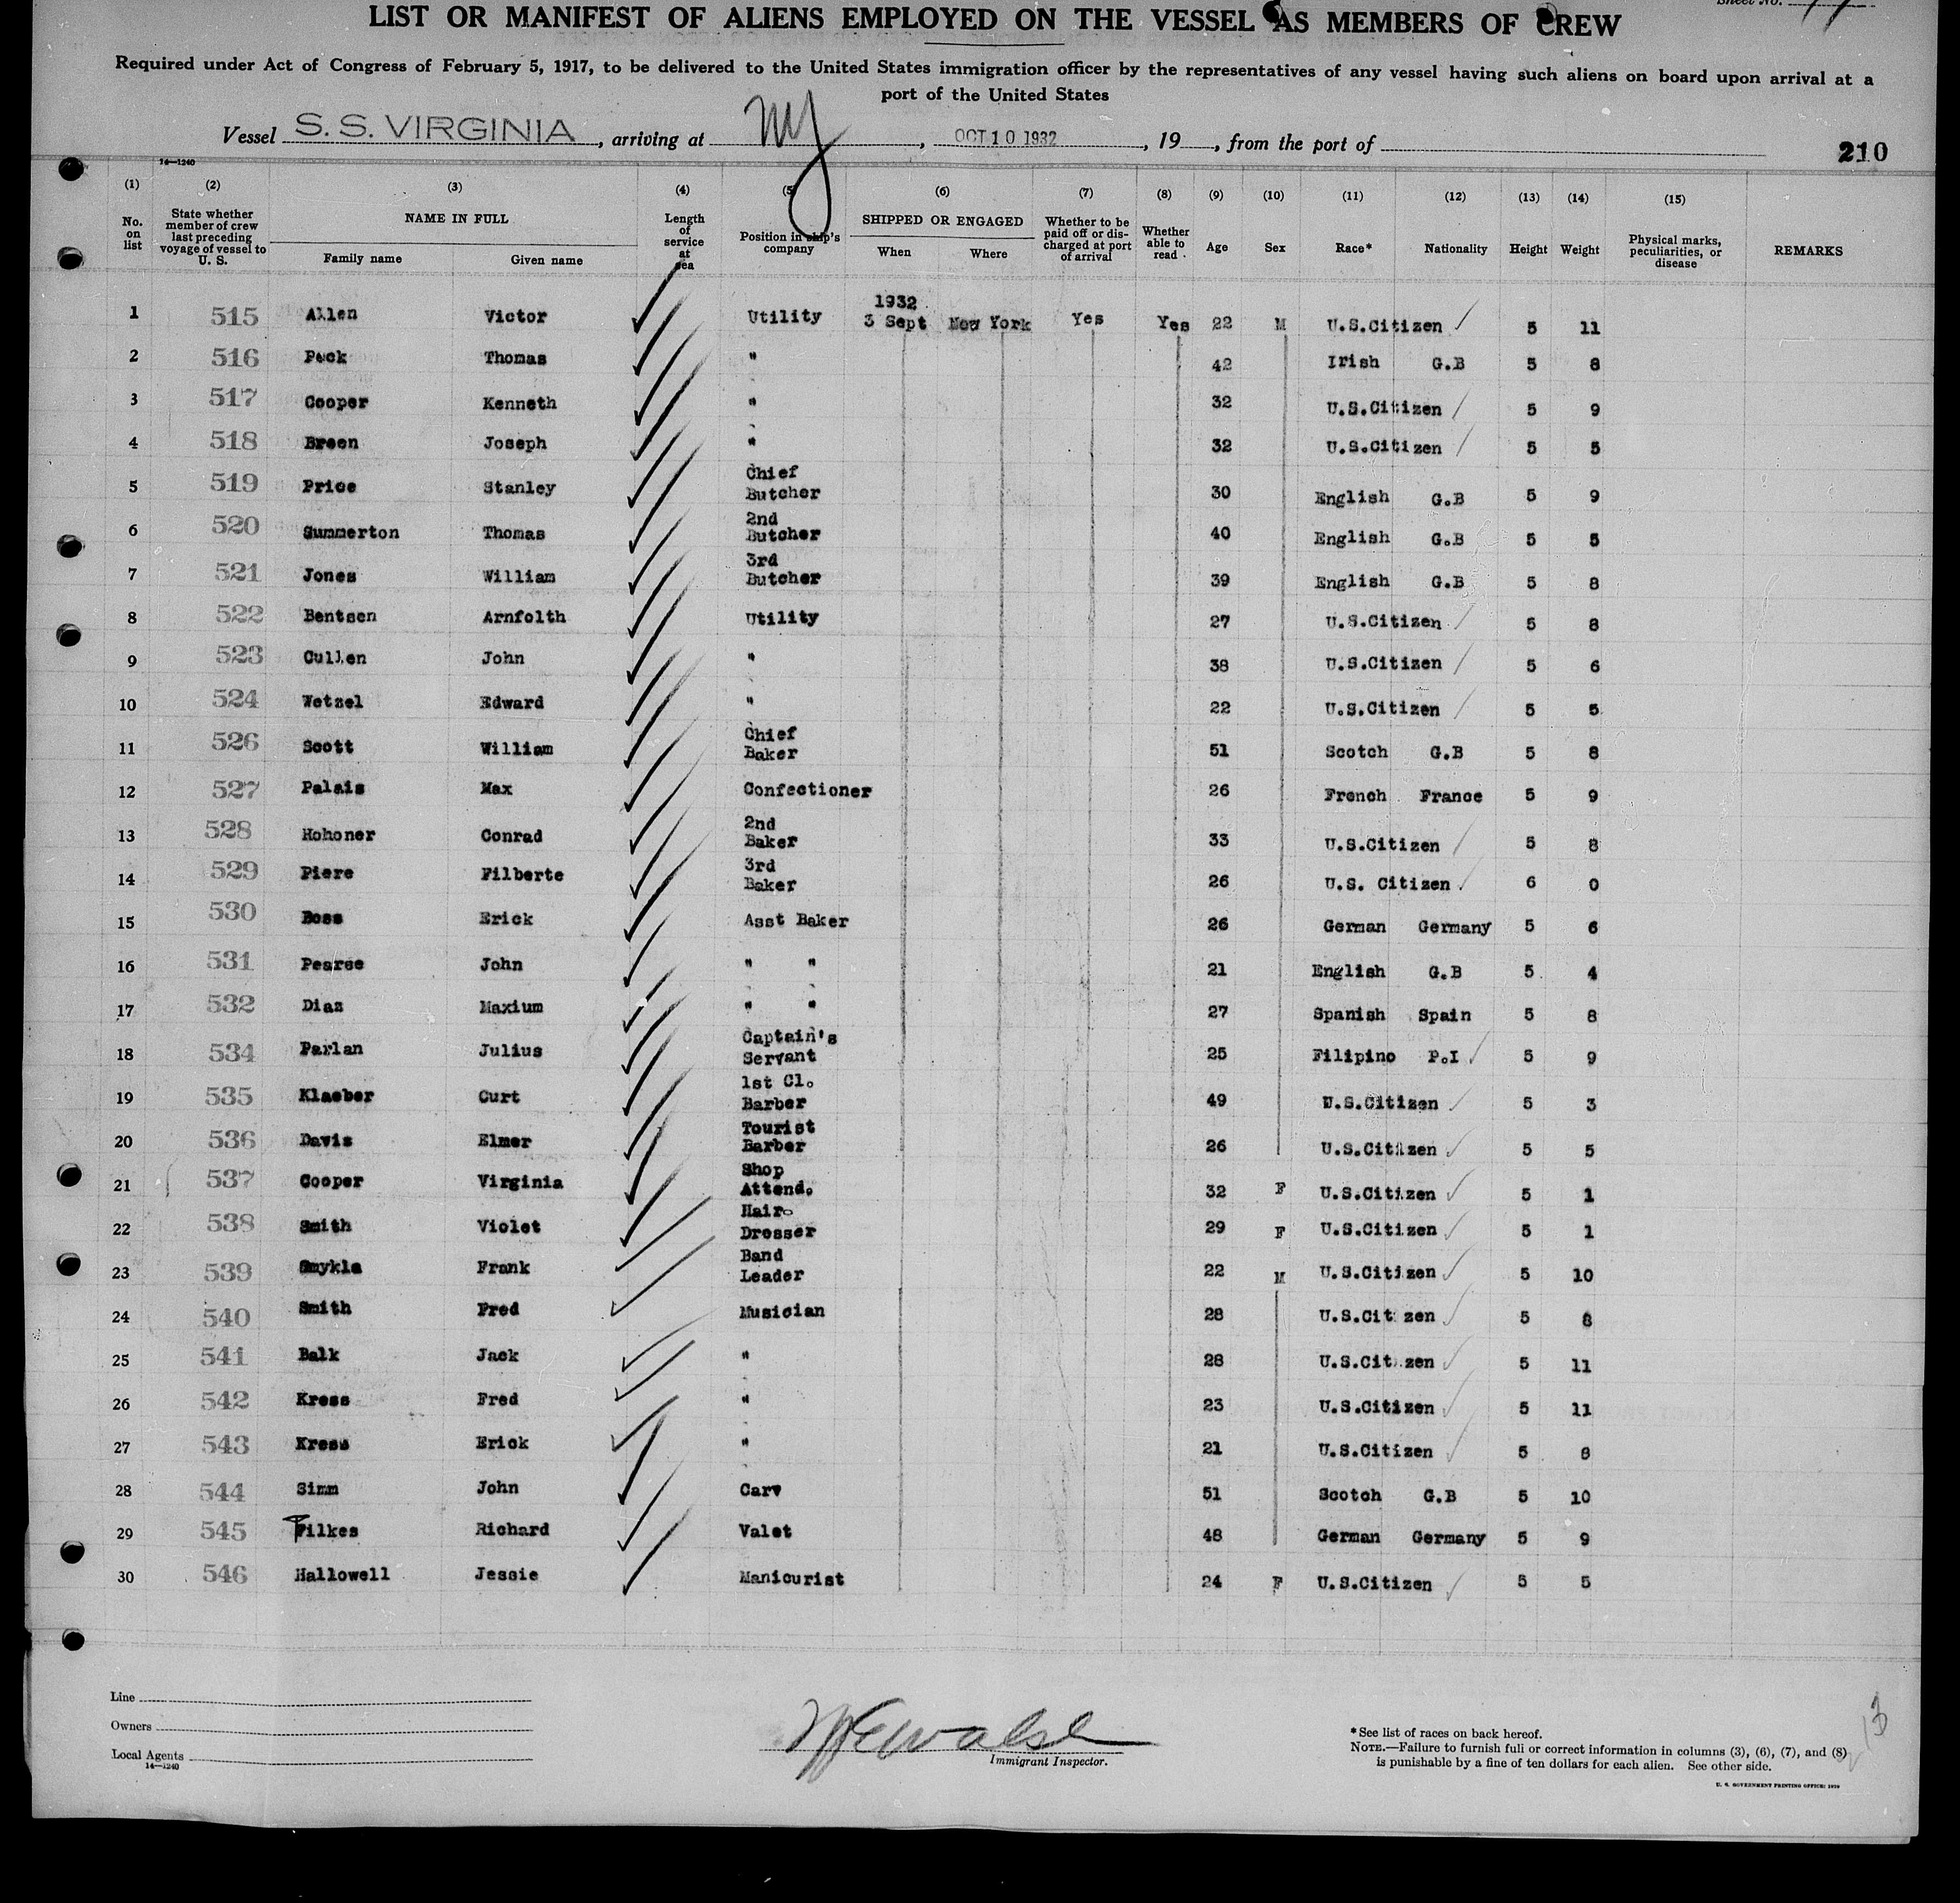 Sheet No.
LIST OR MANIFEST OF ALIENS EMPLOYED ON THE VESSEL AS MEMBERS OF CREW
Required under Act of Congress of February 5, 1917, to be delivered to the United States immigration officer by the representatives of any vessel having such aliens on board upon arrival at a
port of the United States
Vessel S. S. VIRGINIA, arriving at NY, OCT 10 1932, 19, from the port of
210
14—1240
(1) (2) (3) (4) (5) (6) (7) (8) (9) (10) (11) (12) (13) (14) (15)
No. on list State whether member of crew last preceding voyage of vessel to U. S. NAME IN FULL Family name Given name Length of service at sea Position in ship's company SHIPPED OR ENGAGED When Where Whether to be paid off or discharged at port of arrival Whether able to read Age Sex Race* Nationality Height Weight Physical marks, peculiarities, or disease REMARKS
1 515 Allen Victor Utility 1932 3 Sept New York Yes Yes 22 M U.S.Citizen 5 11
2 516 Peck Thomas " 42 Irish G.B 5 8
3 517 Cooper Kenneth " 32 U.S.Citizen 5 9
4 518 Breen Joseph " 32 U.S.Citizen 5 5
5 519 Price Stanley Chief Butcher 30 English G.B 5 9
6 520 Summerton Thomas 2nd Butcher 40 English G.B 5 5
7 521 Jones William 3rd Butcher 39 English G.B 5 8
8 522 Bentsen Arnfolth Utility 27 U.S.Citizen 5 8
9 523 Cullen John " 38 U.S.Citizen 5 6
10 524 Wetzel Edward " 22 U.S.Citizen 5 5
11 526 Scott William Chief Baker 51 Scotch G.B 5 8
12 527 Palais Max Confectioner 26 French France 5 9
13 528 Hohoner Conrad 2nd Baker 33 U.S.Citizen 5 8
14 529 Piere Filberte 3rd Baker 26 U.S. Citizen 6 0
15 530 Boss Erick Asst Baker 26 German Germany 5 6
16 531 Pearse John " " 21 English G.B 5 4
17 532 Diaz Maxium " " 27 Spanish Spain 5 8
18 534 Parlan Julius Captain's Servant 25 Filipino P.I 5 9
19 535 Klaeber Curt 1st Cl. Barber 49 U.S.Citizen 5 3
20 536 Davis Elmer Tourist Barber 26 U.S.Citizen 5 5
21 537 Cooper Virginia Shop Attend. 32 F U.S.Citizen 5 1
22 538 Smith Violet Hair- Dresser 29 F U.S.Citizen 5 1
23 539 Smykla Frank Band Leader 22 M U.S.Citizen 5 10
24 540 Smith Fred Musician 28 U.S.Citizen 5 8
25 541 Balk Jack " 28 U.S.Citizen 5 11
26 542 Kress Fred " 23 U.S.Citizen 5 11
27 543 Kress Erick " 21 U.S.Citizen 5
28 544 Simm John Carv 51 Scotch G.B 5 10
29 545 Filkes Richard Valet 48 German Germany 5 9
30 546 Hallowell Jessie Manicurist 24 F U.S.Citizen 5 5
Line
Owners
Local Agents
14—1240
Immigrant Inspector.
*See list of races on back hereof.
NOTE.—Failure to furnish full or correct information in columns (3), (6), (7), and (8)
is punishable by a fine of ten dollars for each alien. See other side.
U. S. GOVERNMENT PRINTING OFFICE: 1929
13